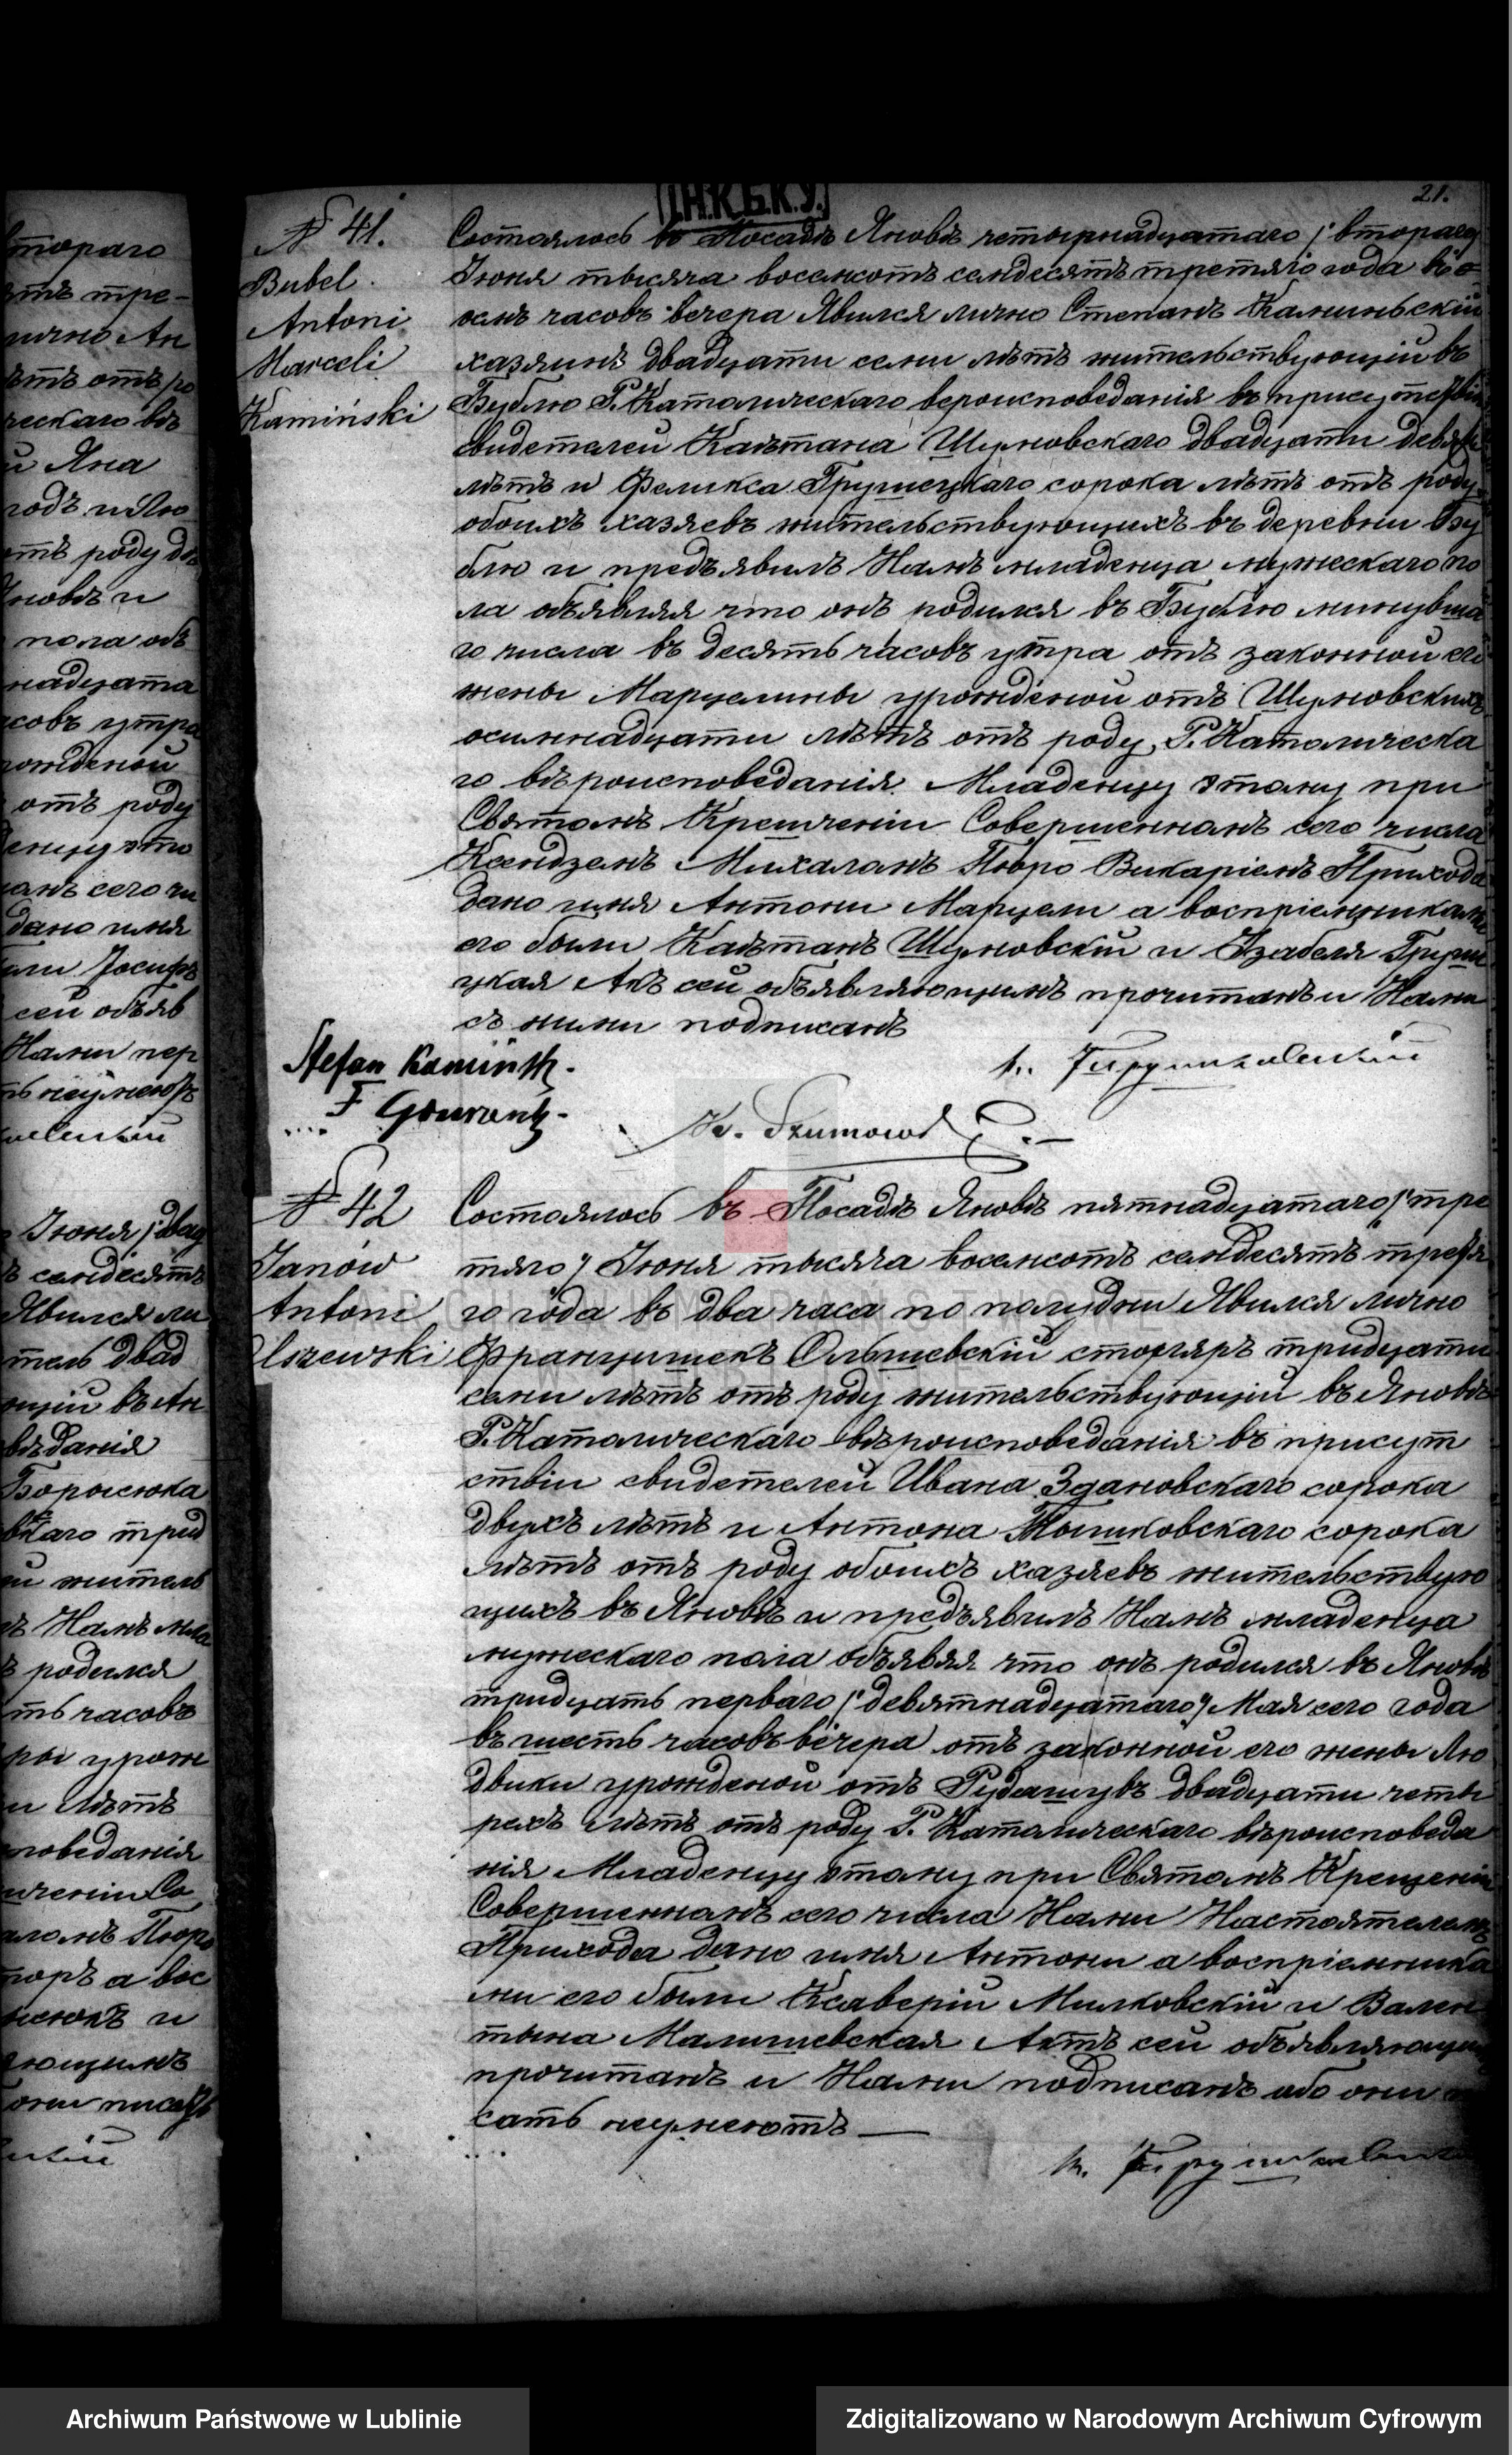 21.
№ 41.
Bubel
Antoni
Marceli
Kamiński
Состоялось въ Посадѣ Яновѣ четырнадцатаго /второго
Іюня тысяча восемсотъ семдесятъ третяго года въ о
семь часовъ вечера Явился лично Степанъ Каминьскій
хазяинъ двадцати семи лѣтъ жительствующій въ
Бублю Р. Католическаго вероисповеданія въ присутствіи
свидетелей Каѣтана Шумовскаго двадцати девяти
лѣтъ и Феликса Грушецкаго сорока лѣтъ отъ роду
обоихъ хазяевъ жительствующихъ въ деревни Бу
блю и предъявилъ Намъ младенца мужескаго по
ла объявляя что онъ родился въ Бублю
го числа въ десять часовъ утра отъ законной его
жены Марцелины урожденой отъ Шумовскихъ
осимнадцати лѣтъ отъ роду, Р. Католическа
го вѣроисповеданія. Младенцу этому при
Святомъ Крещеніи Совершенномъ сего числа
Ксендзомъ Михаломъ Пюро Викаріемъ Прихода
дано имя Антони Марцели а воспріемниками
его были Каѣтанъ Шумовскій и Изабеля Груше
цкая Актъ сей объявляющимъ прочитанъ и Нами
съ ними подписанъ
Stefan Kamińsk.
F
K. Szumowski
№ 42
Janów
Antoni
Olszewski
Состоялось въ Посадѣ Яновѣ пятнадцатаго /тре
тяго/ Іюня тысяча восемсотъ семдесятъ третя
го года въ два часа по полудни Явился лично
Францишекъ Ольшевскій столяръ тридцати
семи лѣтъ отъ роду жительствующій въ Яновѣ
Р. Католическаго вѣроисповеданія въ присут
ствіи свидетелей Ивана Здановскаго сорока
двухъ лѣтъ и Антона сорока
лѣтъ отъ роду обоихъ хазяевъ жительствую
щихъ въ Яновѣ и предъявилъ Намъ младенца
мужескаго пола объявляя что онъ родился въ Яновѣ
тридцать перваго /девятнадцатаго/ Мая сего года
въ шесть часовъ вечера отъ законной его жены Лю
двики урожденой отъ двадцати четы
рехъ лѣтъ отъ роду Р. Католическаго вѣроисповеда
нія Младенцу этому при Святомъ Крещеніи
Совершенномъ сего числа Нами Настоятелемъ
Прихода дано имя Антони а воспріемника
ми его были Ксаверій Милковскій и Вален
тына Малишевская Актъ сей объявляющимъ
прочитанъ и Нами подписанъ ибо они пи
сать неумеютъ
ARCHIWUM PAŃSTWOWE
W LUBLINIE
Archiwum Państwowe w Lublinie
Zdigitalizowano w Narodowym Archiwum Cyfrowym